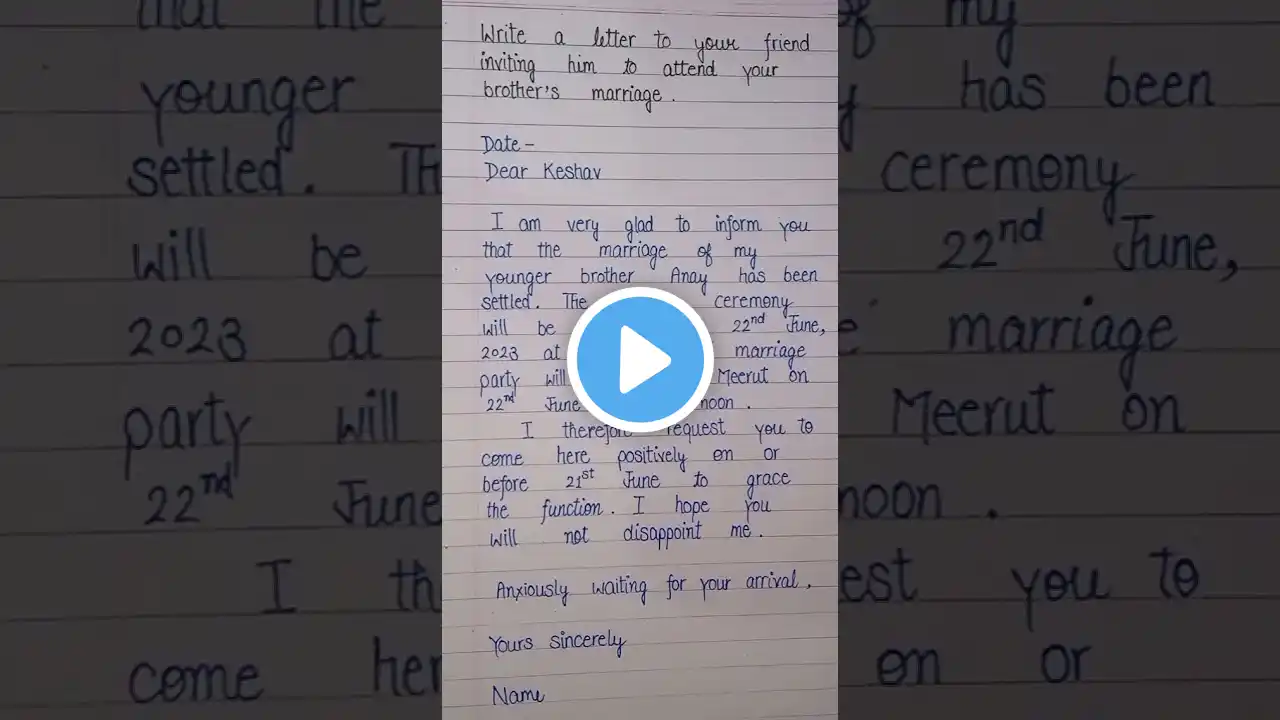 Write a letter to your friend
inviting him to attend your
brother's marriage.
Date -
Dear Keshav
I am very glad to inform you
that the marriage of my
younger brother Anay has been
settled. The ceremony
will be 22nd June,
2023 at marriage
party will Meerut on
22nd June noon.
I therefore request you to
come here positively on or
before 21st June to grace
the function. I hope you
will not disappoint me.
Anxiously waiting for your arrival.
Yours sincerely
Name